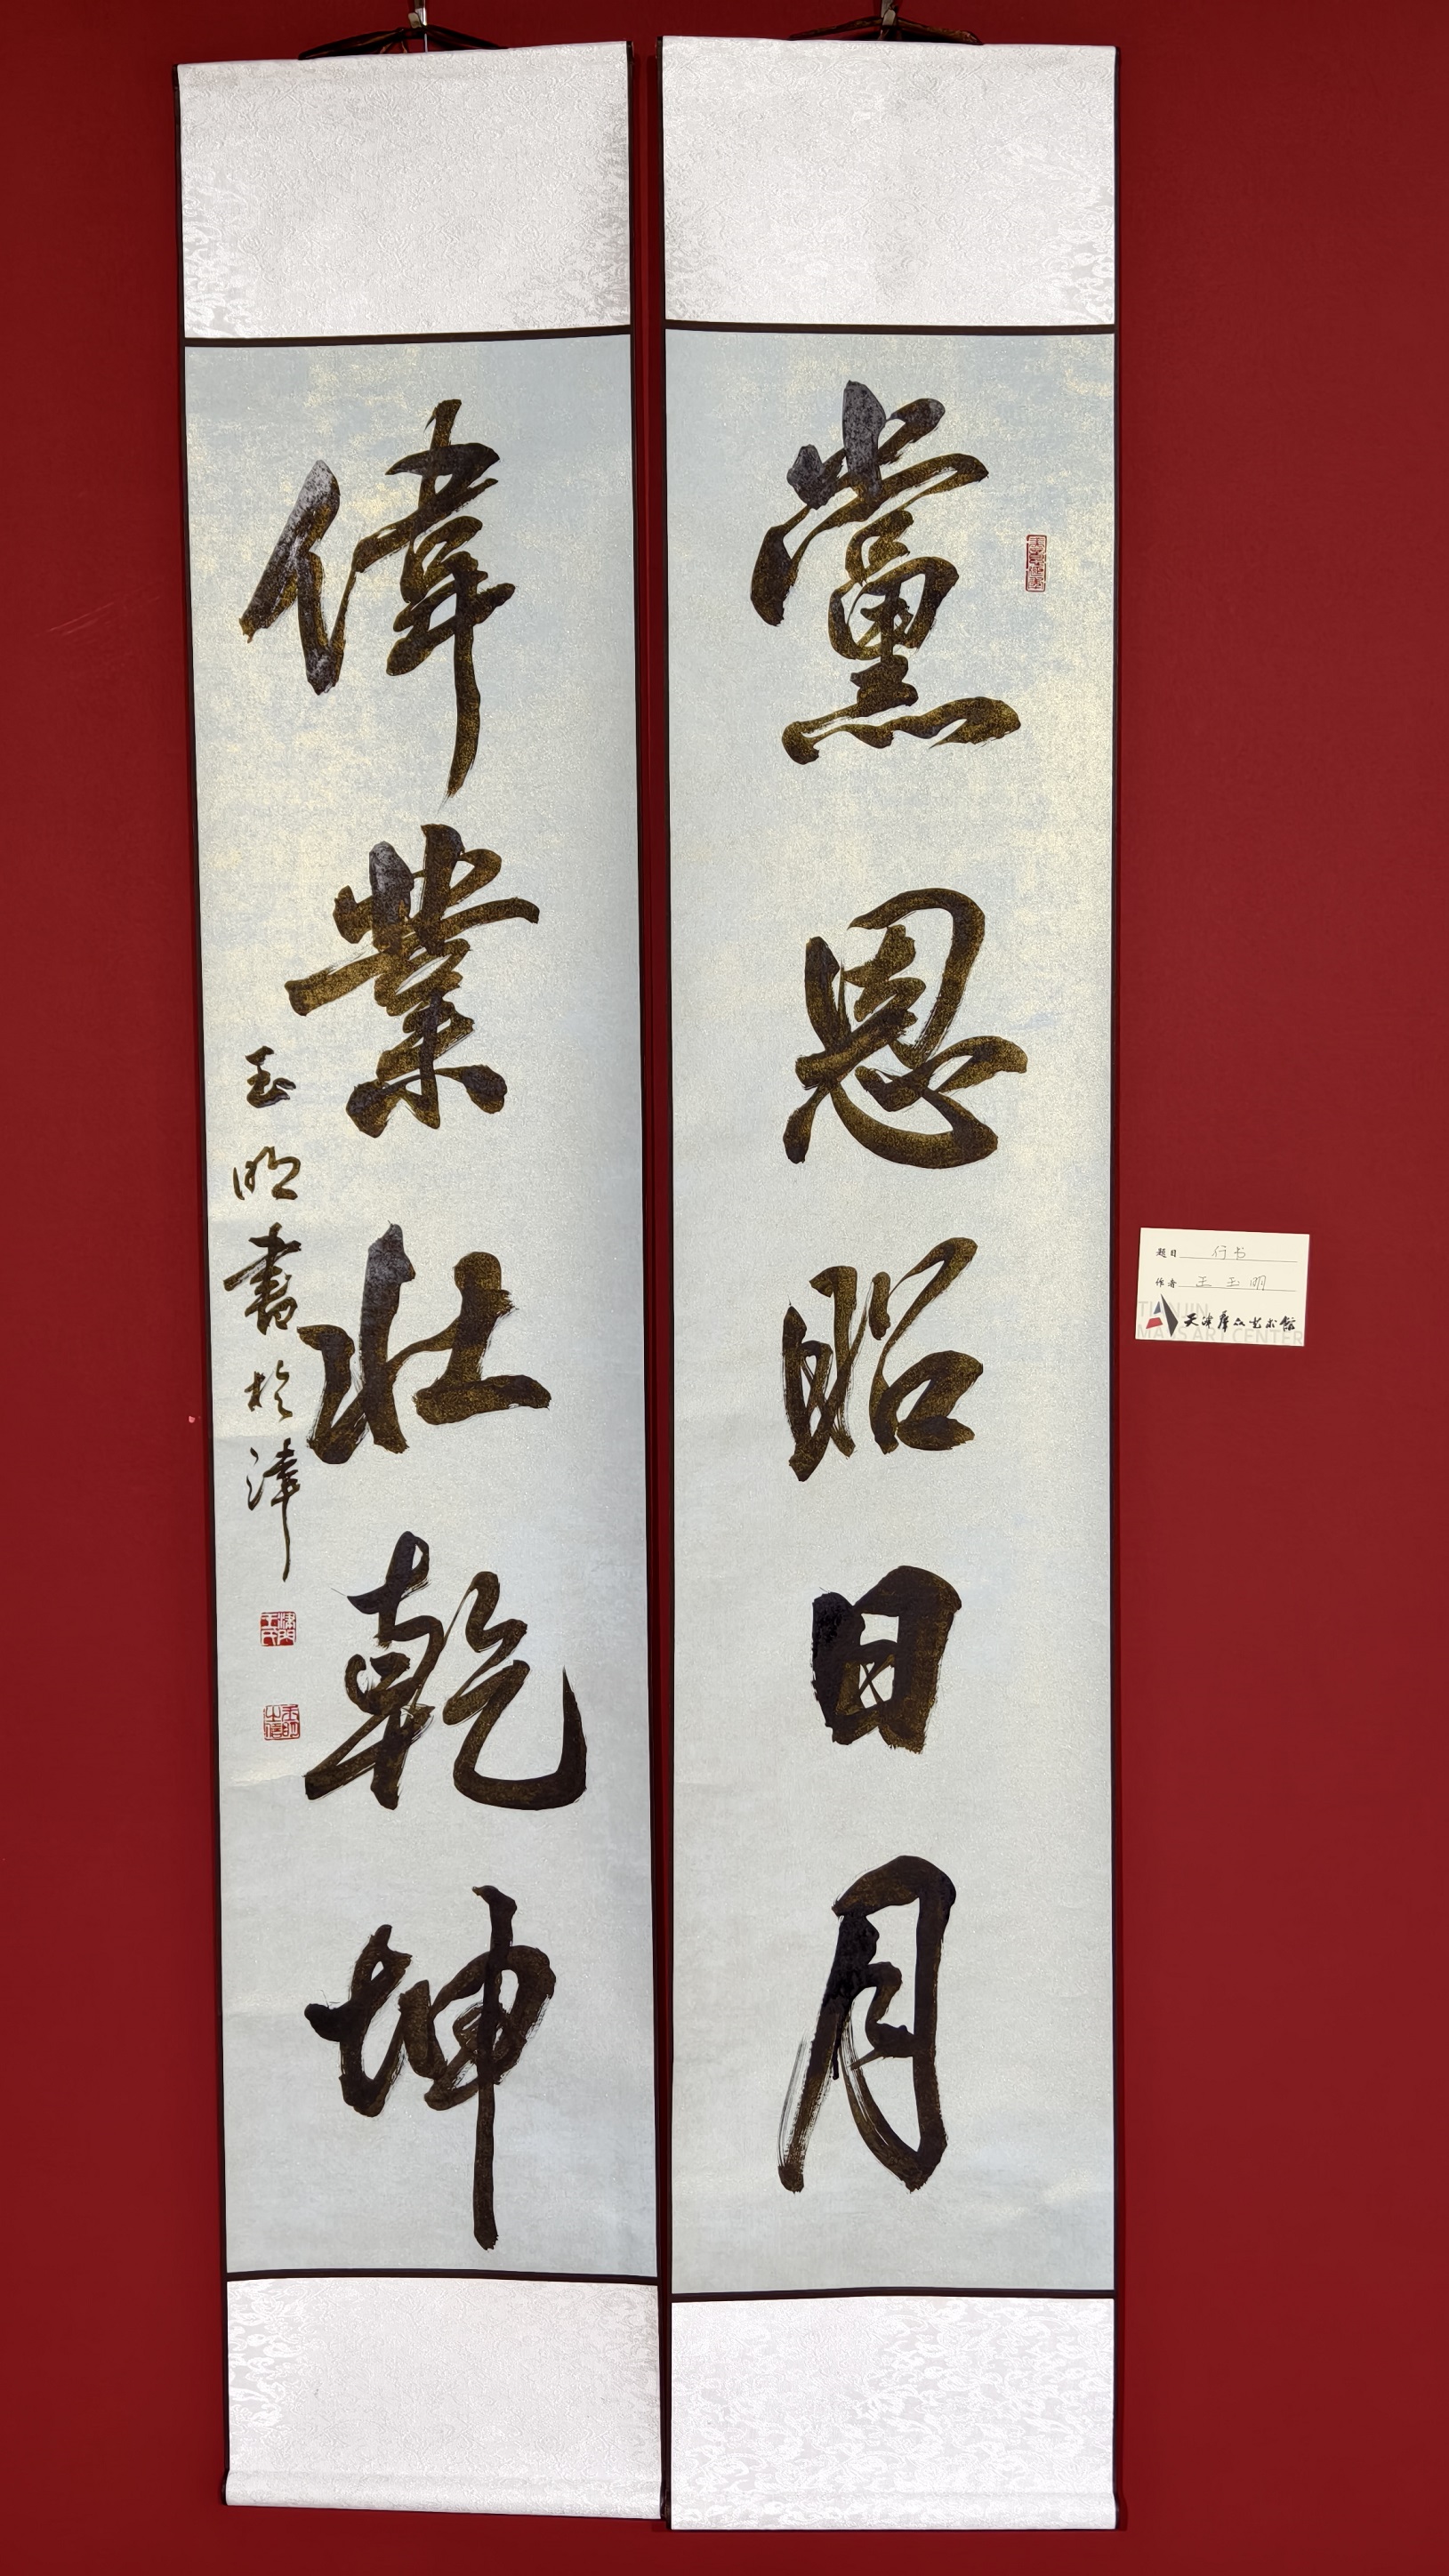 黨恩昭日月
偉業壯乾坤
玉明書於津
津門王氏
題目 行书
作者 王玉明
天津群众艺术馆
TIANJIN
MASS ART CENTER